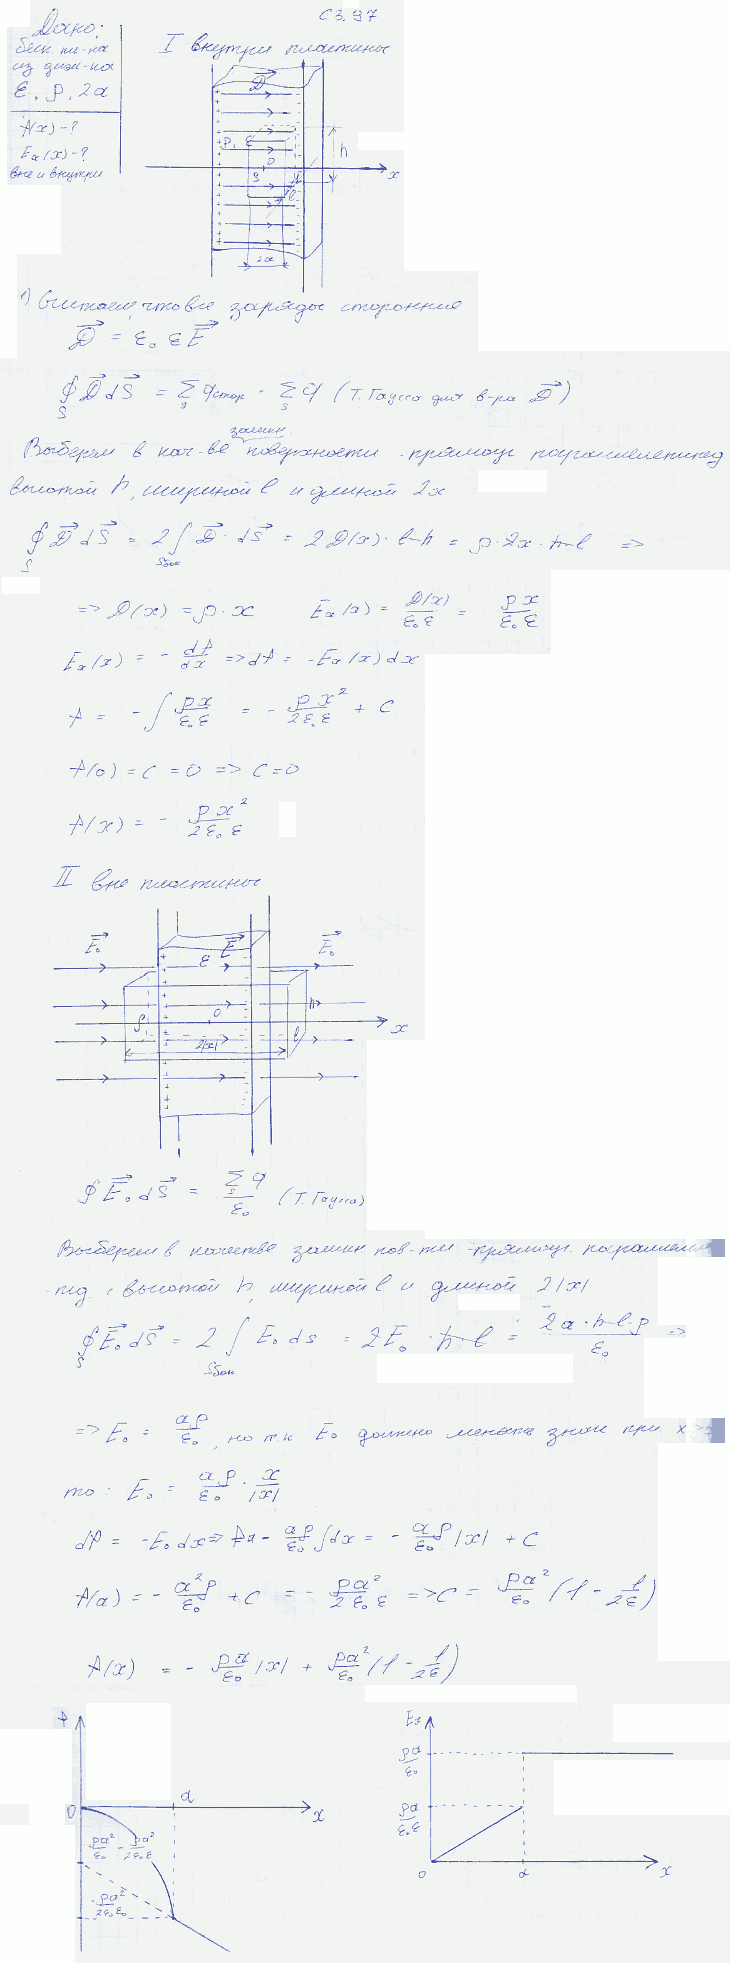 С3.97
Дано:
беск. пл-на
из диэл-ка
ε, ρ, 2a
φ(x) - ?
Eₓ(x) - ?
вне и внутри
I внутри пластины
D⃗
ρ, ε
0
S
h
l
x
2x
1) Считаем, что все заряды сторонние
D⃗ = ε₀ ε E⃗
∮ₛ D⃗ dS⃗ = Σₛ qстор = Σₛ q (Т. Гаусса для в-ра D⃗)
замкн.
Выберем в кач-ве поверхности - прямоуг. параллелепипед
высотой h, шириной l и длиной 2x
∮ₛ D⃗ dS⃗ = 2 ∫Sбок D⃗ · dS⃗ = 2 D(x) · l · h = ρ · 2x · h · l =>
=> D(x) = ρ · x   Eₓ(x) = D(x)/(ε₀ ε) = ρx/(ε₀ ε)
Eₓ(x) = - dφ/dx => dφ = -Eₓ(x) dx
φ = - ∫ ρx/(ε₀ ε) = - ρx²/(2ε₀ ε) + C
φ(0) = C = 0 => C = 0
φ(x) = - ρx²/(2ε₀ ε)
II вне пластины
E⃗₀
ε
E⃗
E⃗₀
S
0
h
l
2|x|
x
∮ E⃗₀ dS⃗ = Σₛ q/ε₀ (Т. Гаусса)
Выберем в качестве замкн пов-ти - прямоуг.
-пед. с высотой h, шириной l и длиной 2|x|
∮ₛ E⃗₀ dS⃗ = 2 ∫Sбок E₀ ds = 2E₀ · h · l = 2a · h · l · ρ/ε₀ =>
=> E₀ = aρ/ε₀, но т.к E₀ должно менять знак при x
то: E₀ = aρ/ε₀ · x/|x|
dφ = -E₀ dx => φ = - aρ/ε₀ ∫dx = - aρ/ε₀ |x| + C
φ(a) = - a²ρ/ε₀ + C = - ρa²/(2ε₀ ε) => C = ρa²/ε₀ (1 - 1/2ε)
φ(x) = - ρa/ε₀ |x| + ρa²/ε₀ (1 - 1/2ε)
φ
0
a
x
ρa²/ε₀ - ρa²/(2ε₀ε)
-ρa²/(2ε₀ε₀)
Eₓ
ρa/ε₀
ρa/(ε₀ε)
0
a
x